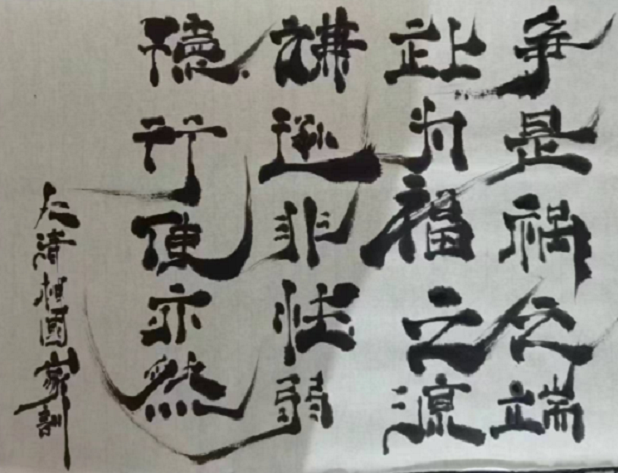 争是祸之端
让为福之源
谦逊非怯弱
德行使亦然
大清相国家训